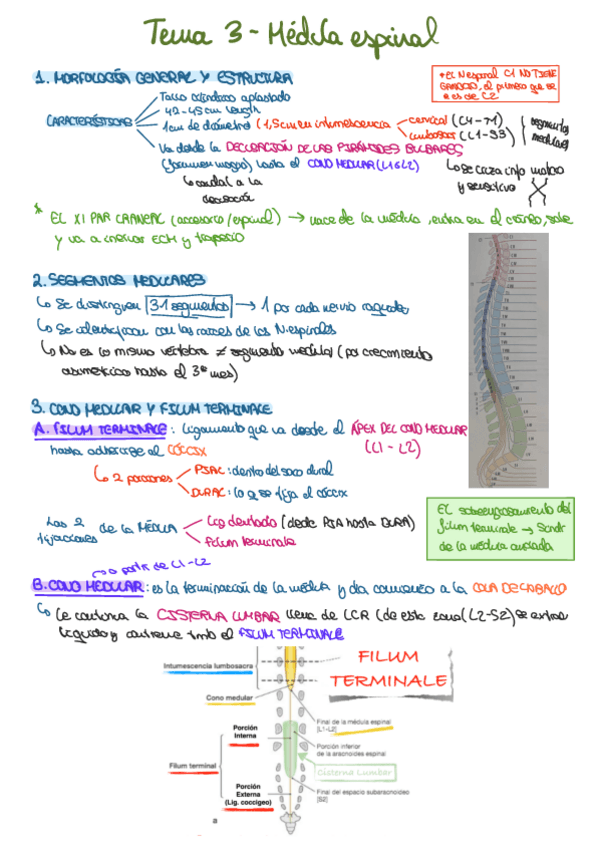 Tema 3 - Médula espinal
1. MORFOLOGÍA GENERAL Y ESTRUCTURA
* EL N espinal C1 NO TIENE
GANGLIO, el primero que se
ve es de C2
CARACTERÍSTICAS
Tallo cilíndrico aplastado
42-45 cm length
1 cm de diámetro (1,5 cm en intumescencia
cervical (C4-T1)
lumbosac (L1-S3)
segmentos
medulares
Va desde la DECUSACIÓN DE LAS PIRÁMIDES BULBARES
(foramen magno) hasta el CONO MEDULAR (L1 o L2)
↳ caudal a la
decusación
↳ se cruza info motora
y sensitiva
* EL XI PAR CRANEAL (accesorio/espinal) → nace de la médula, entra en el cráneo, sale
y va a inervar ECM y trapecio
2. SEGMENTOS MEDULARES
↳ Se distinguen 31 segmentos → 1 por cada nervio raquídeo
↳ Se identifican con las raíces de los N. espinales
↳ No es lo mismo vértebra ≠ segmento medular (por crecimiento
asimétrico hasta el 3er mes)
3. CONO MEDULAR Y FILUM TERMINALE
A. FILUM TERMINALE: ligamento que va desde el ÁPEX DEL CONO MEDULAR
(L1 - L2)
hasta adherirse al CÓCCIX
↳ 2 porciones
PIAL: dentro del saco dural
DURAL: la q se fija al cóccix
Las 2
fijaciones
de la MÉDULA
Lig dentado (desde PIA hasta DURA)
Filum terminale
El sobreengrosamiento del
filum terminale → Sdr
de la médula anclada
→ a partir de L1-L2
B. CONO MEDULAR: es la terminación de la médula y da comienzo a la COLA DE CABALLO
↳ Le continua la CISTERNA LUMBAR llena de LCR (de esta zona (L2-S2) se extrae
líquido y contiene tmb el FILUM TERMINALE
FILUM
TERMINALE
Intumescencia lumbosacra
Cono medular
Porción
Interna
Filum terminal
Porción
Externa
(Lig. coccígeo)
Final de la médula espinal
[L1-L2]
Porción inferior
de la aracnoides espinal
Cisterna Lumbar
Final del espacio subaracnoideo
[S2]
a